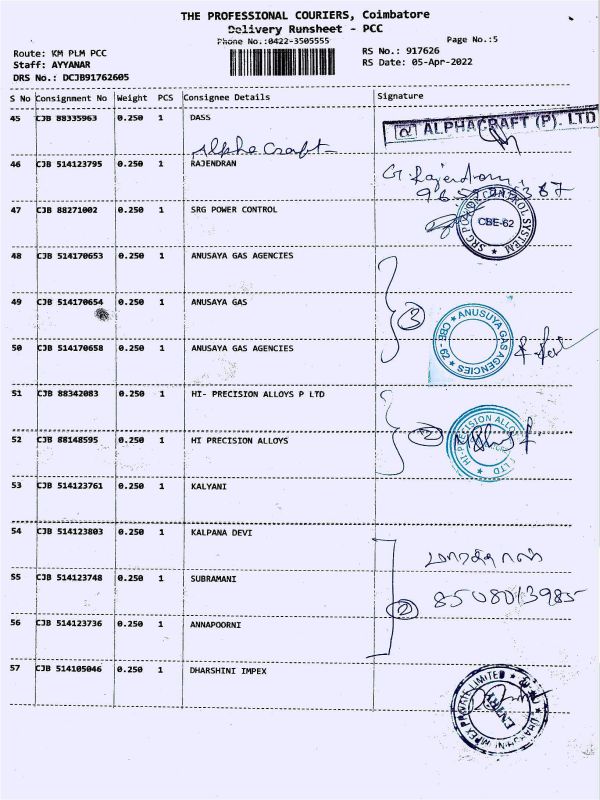 THE PROFESSIONAL COURIERS, Coimbatore
Delivery Runsheet - PCC
Phone No.:0422-3505555
Page No.:5
Route: KM PLM PCC
RS No.: 917626
Staff: AYYANAR
RS Date: 05-Apr-2022
DRS No.: DCJB91762605
S No Consignment No Weight PCS Consignee Details Signature
45 CJB 88335963 0.250 1 DASS
ALPHACRAFT (P). LTD
Alpha Craft
46 CJB 514123795 0.250 1 RAJENDRAN
G. Rajendran
47 CJB 88271002 0.250 1 SRG POWER CONTROL
SRG POWER CONTROL SYSTEM
CBE-62
48 CJB 514170653 0.250 1 ANUSAYA GAS AGENCIES
49 CJB 514170654 0.250 1 ANUSAYA GAS
3
ANUSUYA GAS AGENCIES
CBE-62
50 CJB 514170658 0.250 1 ANUSAYA GAS AGENCIES
51 CJB 88342083 0.250 1 HI- PRECISION ALLOYS P LTD
HI-PRECISION ALLOYS LTD
52 CJB 88148595 0.250 1 HI PRECISION ALLOYS
2
53 CJB 514123761 0.250 1 KALYANI
54 CJB 514123803 0.250 1 KALPANA DEVI
55 CJB 514123748 0.250 1 SUBRAMANI
8508013985
56 CJB 514123736 0.250 1 ANNAPOORNI
57 CJB 514105046 0.250 1 DHARSHINI IMPEX
DHARSHINI IMPEX PRIVATE LIMITED
ENTRY